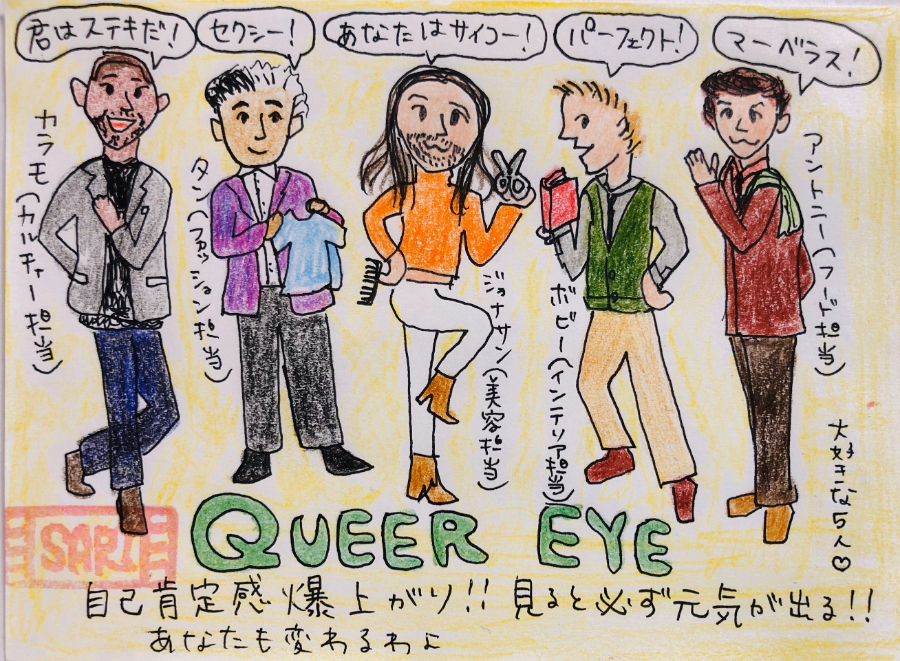 君はステキだ!
セクシー!
あなたはサイコー!
パーフェクト!
マーベラス!
カラモ(カルチャー担当)
タン(ファッション担当)
ジョナサン(美容担当)
ボビー(インテリア担当)
アントニー(フード担当)
大好きな5人♡
QUEER EYE
自己肯定感爆上がり!! 見ると必ず元気が出る!!
あなたも変わるわよ